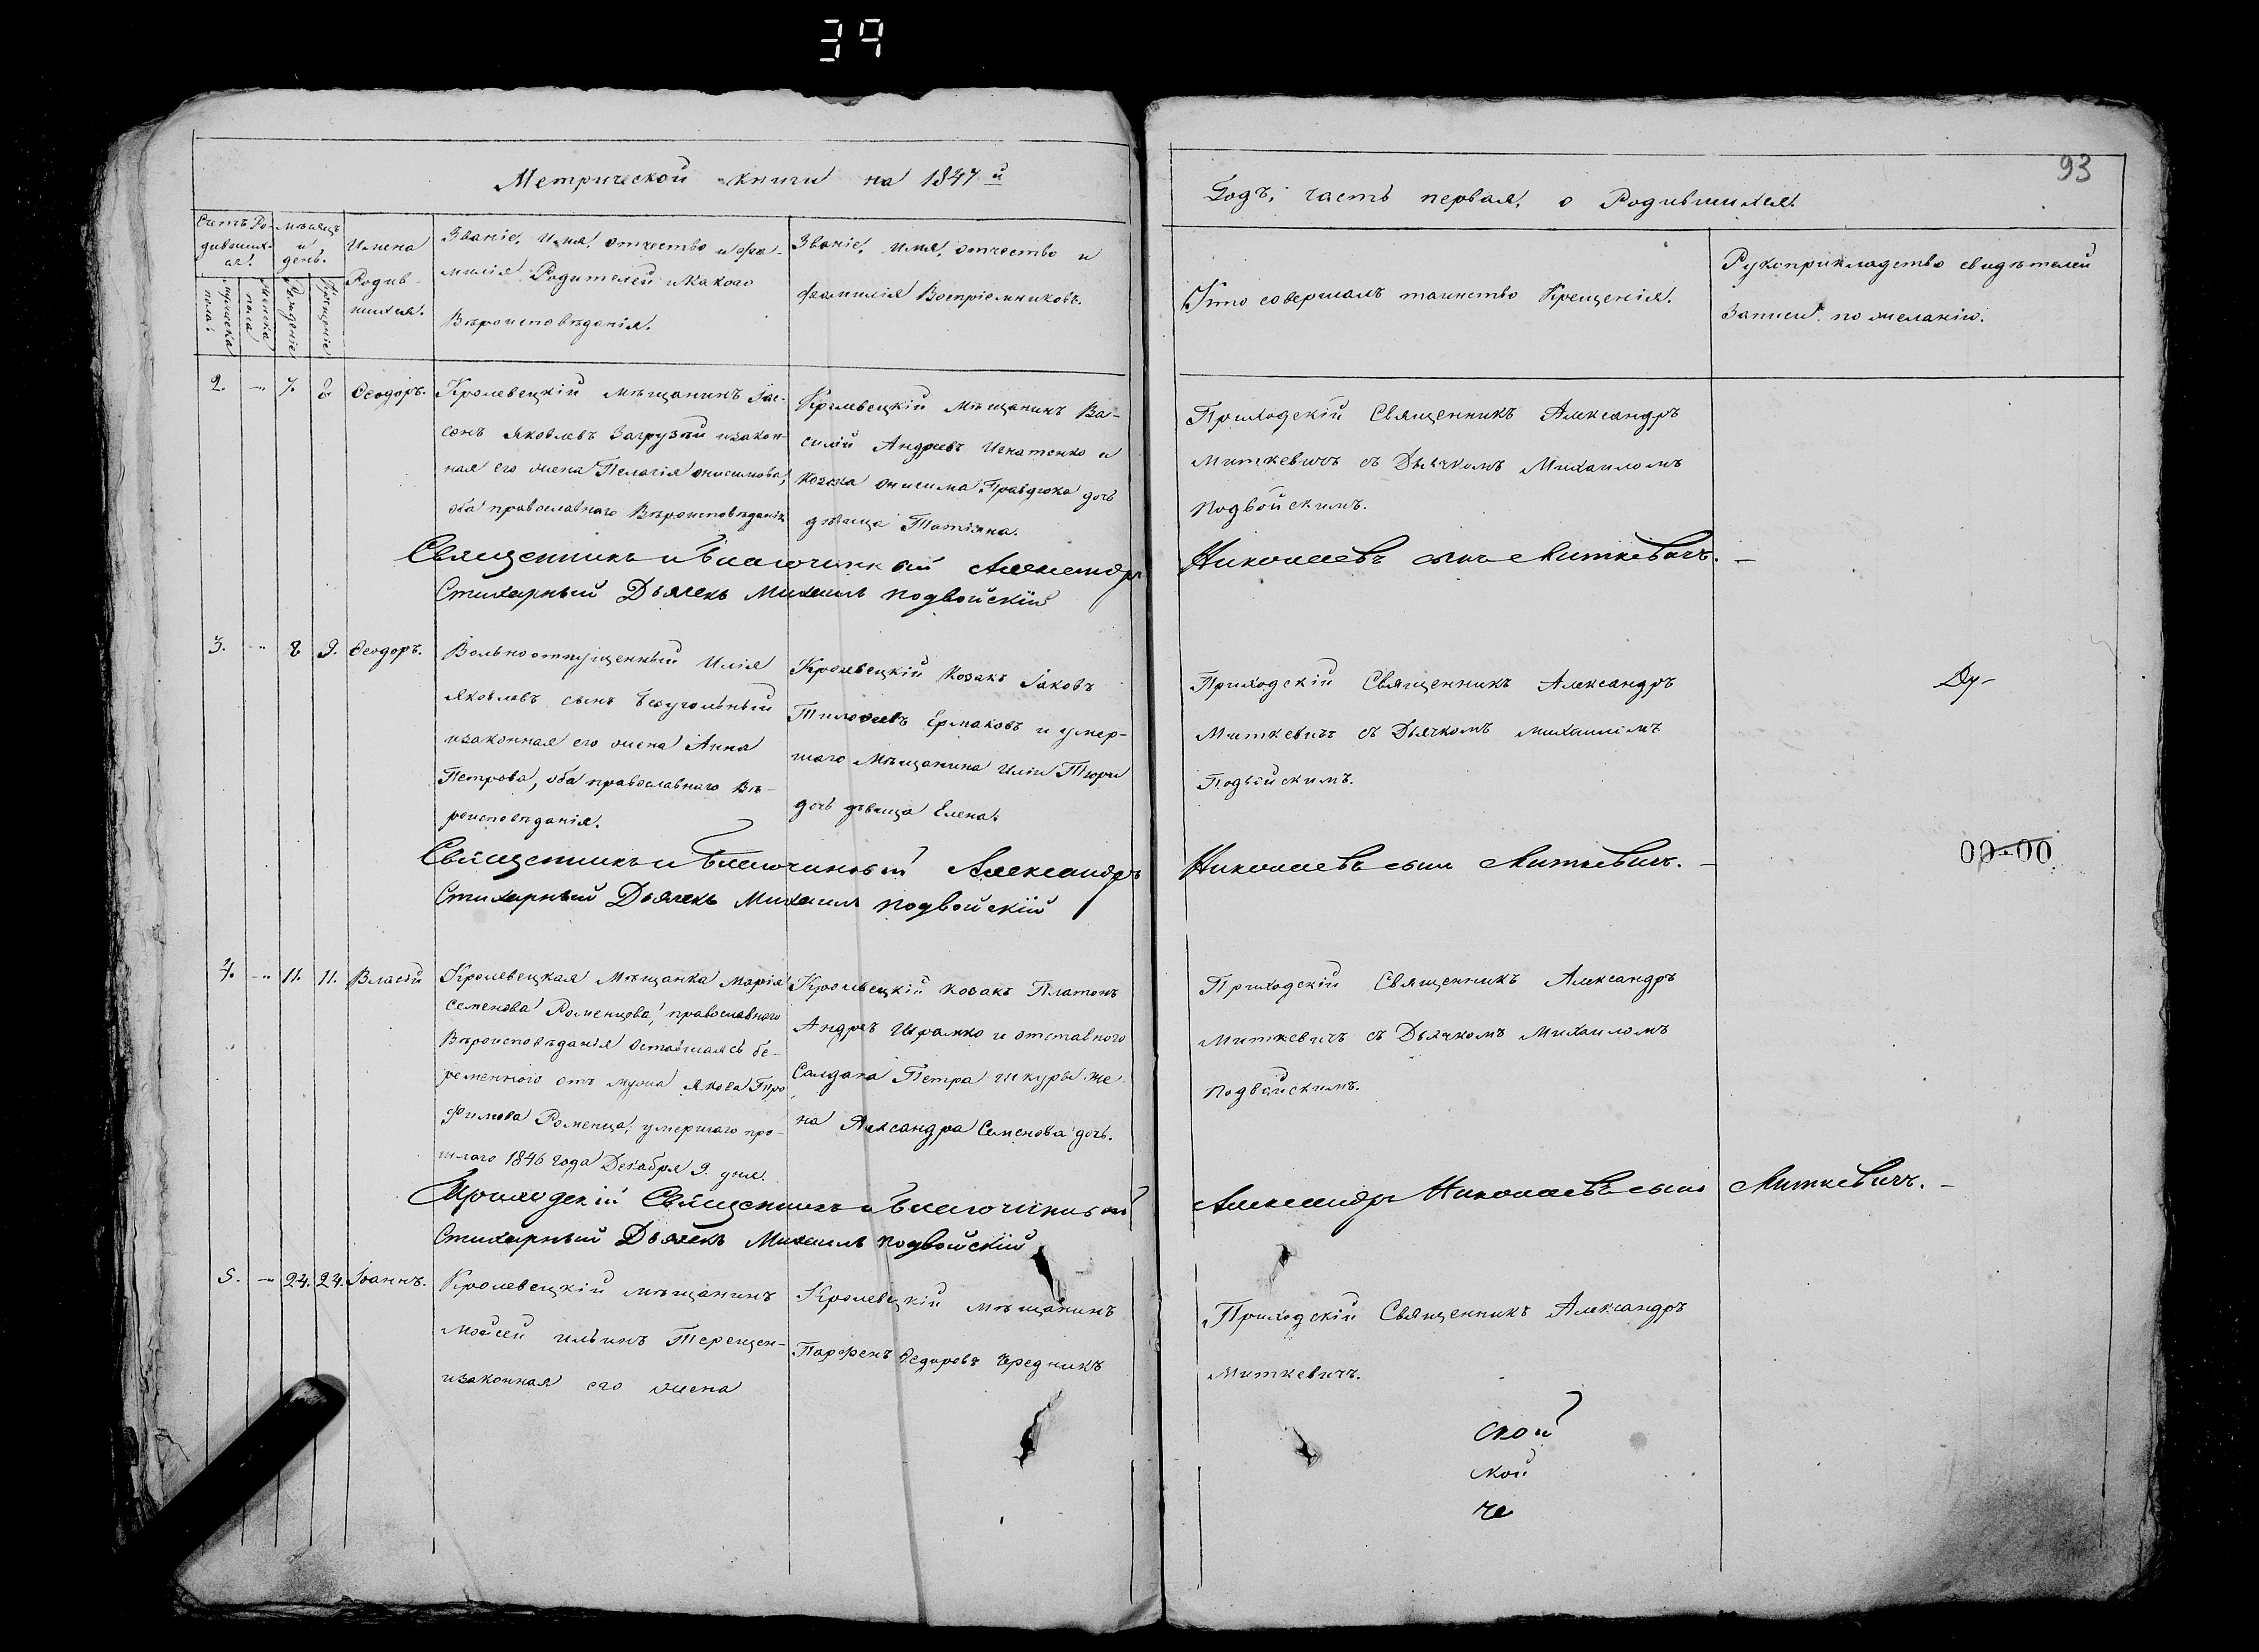 39
93
Метрической книги на 1847й
Годъ, часть первая, о Родившихся.
Счетъ Ро-
дивших-
ся.
мужеска
пола.
женска
пола
мѣсяцъ
и
день.
Рожденіе
Крещеніе
Имена
Родив-
шихся.
Званіе, имя, отчество и фа-
милія Родителей и какого
Вѣроисповѣданія.
Званіе, имя, отчество и
фамилія Воспріемниковъ.
Кто совершалъ таинство Крещенія.
Рукоприкладство свидѣтелей
записи по желанію.
2. -" 7. 8 Ѳеодоръ.
Кролевецкій мѣщанинъ Іас-
сонъ Яковлевъ Загрузый и закон-
ная его жена Пелагія Онисимова,
оба православнаго Вѣроисповѣданія
Кролевецкій Мѣщанинъ Ва-
силій Андреевъ Игнатенко и
козака Онисима Правдюка дочь
дѣвица Татіяна.
Приходскій Священникъ Александръ
Миткевичъ съ Дьячкомъ Михаиломъ
Подвойскимъ.
Священникъ и Благочинный Александръ Николаевъ сынъ Миткевичъ.-
Стихарный Дьячекъ Михаилъ Подвойскій
3. -" 8 9. Ѳеодоръ.
Вольноотпущенный Илія
Яковлевъ сынъ
и законная его жена Анна
Петрова, оба православнаго Вѣ-
роисповѣданія.
Кролевецкій козакъ Іаковъ
Тимофеевъ Ермаковъ и умер-
шаго Мѣщанина Иліи Тюри
дочь дѣвица Елена.
Приходскій Священникъ Александръ
Миткевичъ съ Дьячкомъ Михаиломъ
Подвойскимъ.
Ду-
Священникъ и Благочинный Александръ Николаевъ сынъ Миткевичъ.-
00-00
Стихарный Дьячекъ Михаилъ Подвойскій
4. -" 11. 11. Власій
Кролевецкая Мѣщанка Марія
Семенова Роменцова, православнаго
Вѣроисповѣданія оставшаясь бе-
ременною отъ мужа Якова Тро-
фимова Роменца, умершаго про-
шлаго 1846 года Декабря 9. дня.
Кролевецкій козакъ Платонъ
Андреевъ Шрамко и отставного
Салдата Петра Шкуры же-
на Александра Семенова дочь.
Приходскій Священникъ Александръ
Миткевичъ съ Дьячкомъ Михаиломъ
Подвойскимъ.
Приходскій Священникъ и Благочинный Александръ Николаевъ сынъ Миткевичъ.-
Стихарный Дьячекъ Михаилъ Подвойскій
5. -" 24. 24. Іоаннъ.
Кролевецкій мѣщанинъ
Мойсей Ильинъ Терещен-
и законная его жена
Кролевецкій мѣщанинъ
Парфенъ Федоровъ Чередникъ
Приходскій Священникъ Александръ
Миткевичъ.
ской
кой
че